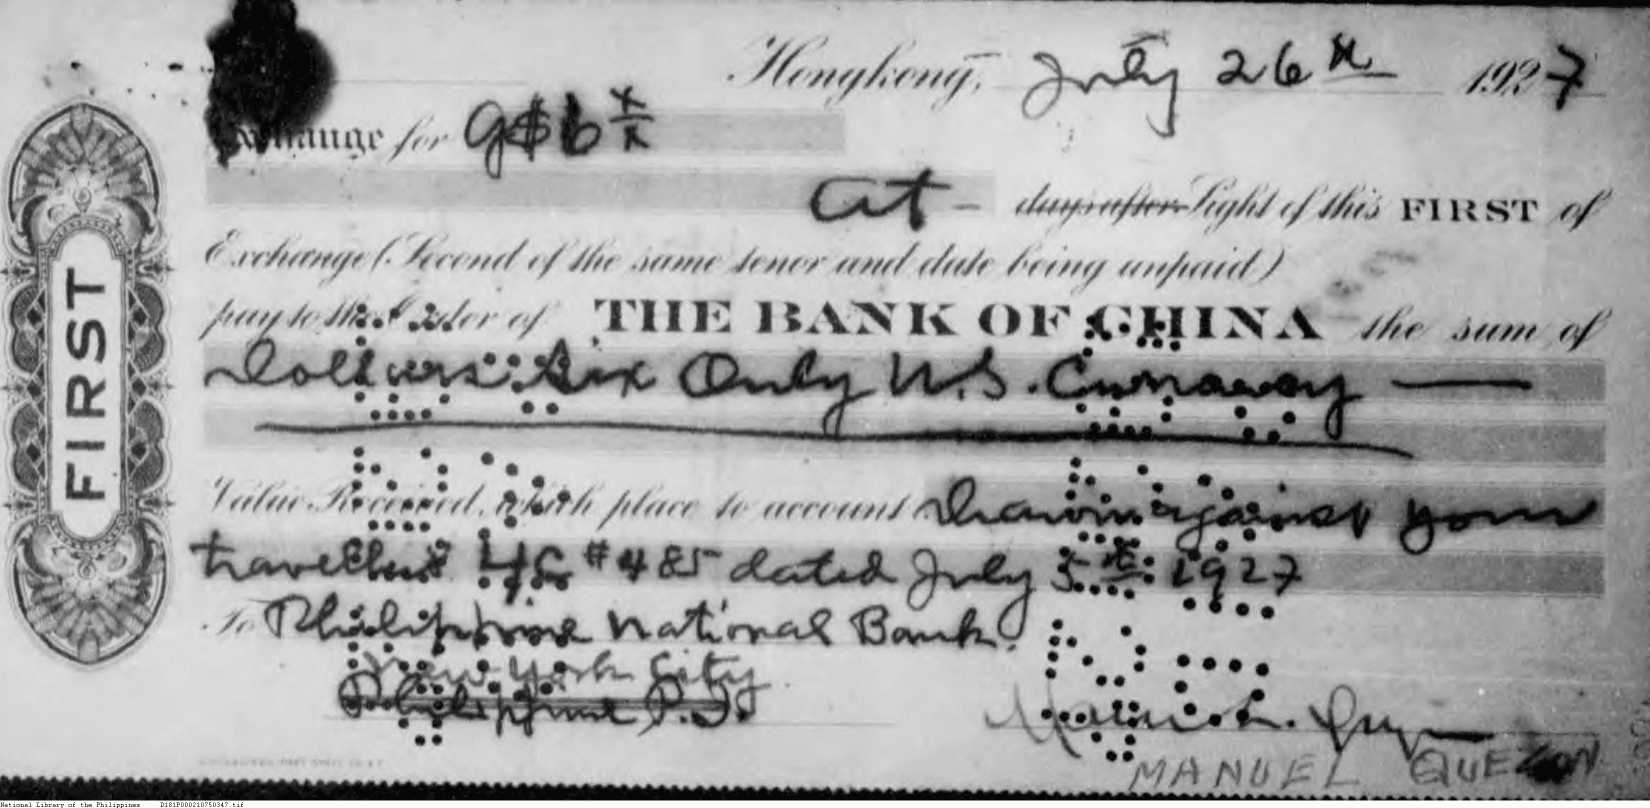 Hongkong, July 26th 1927
Exchange for G$6 x/x
At - days after Sight of this FIRST of
Exchange (Second of the same tenor and date being unpaid)
pay to the Order of THE BANK OF CHINA the sum of
Dollars Six Only U.S. Currency
Value Received, which place to account Drawn against your
travellers L/C #485 dated July 5th 1927
To Philippine National Bank.
New York City
Philippine P.I.
Manuel L. Quezon
MANUEL QUEZON
FIRST
National Library of the Philippines D181P000210750347.tif